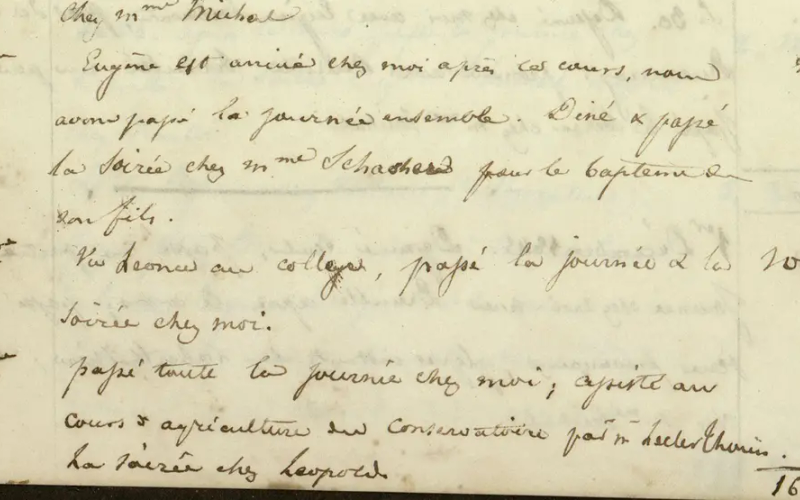 chez mme Michal
Eugène est arrivé chez moi après ces cours, nous
avons passé la journée ensemble. Diné & passé
la Soirée chez mme pour le bapteme de
son fils.
Vu Leonce au college, passé la journée & la
Soirée chez moi.
passé toute la journée chez moi; assisté au
cours d'agriculture du Conservatoire par mr Leclerc Thouin.
La Soirée chez Leopold.
16